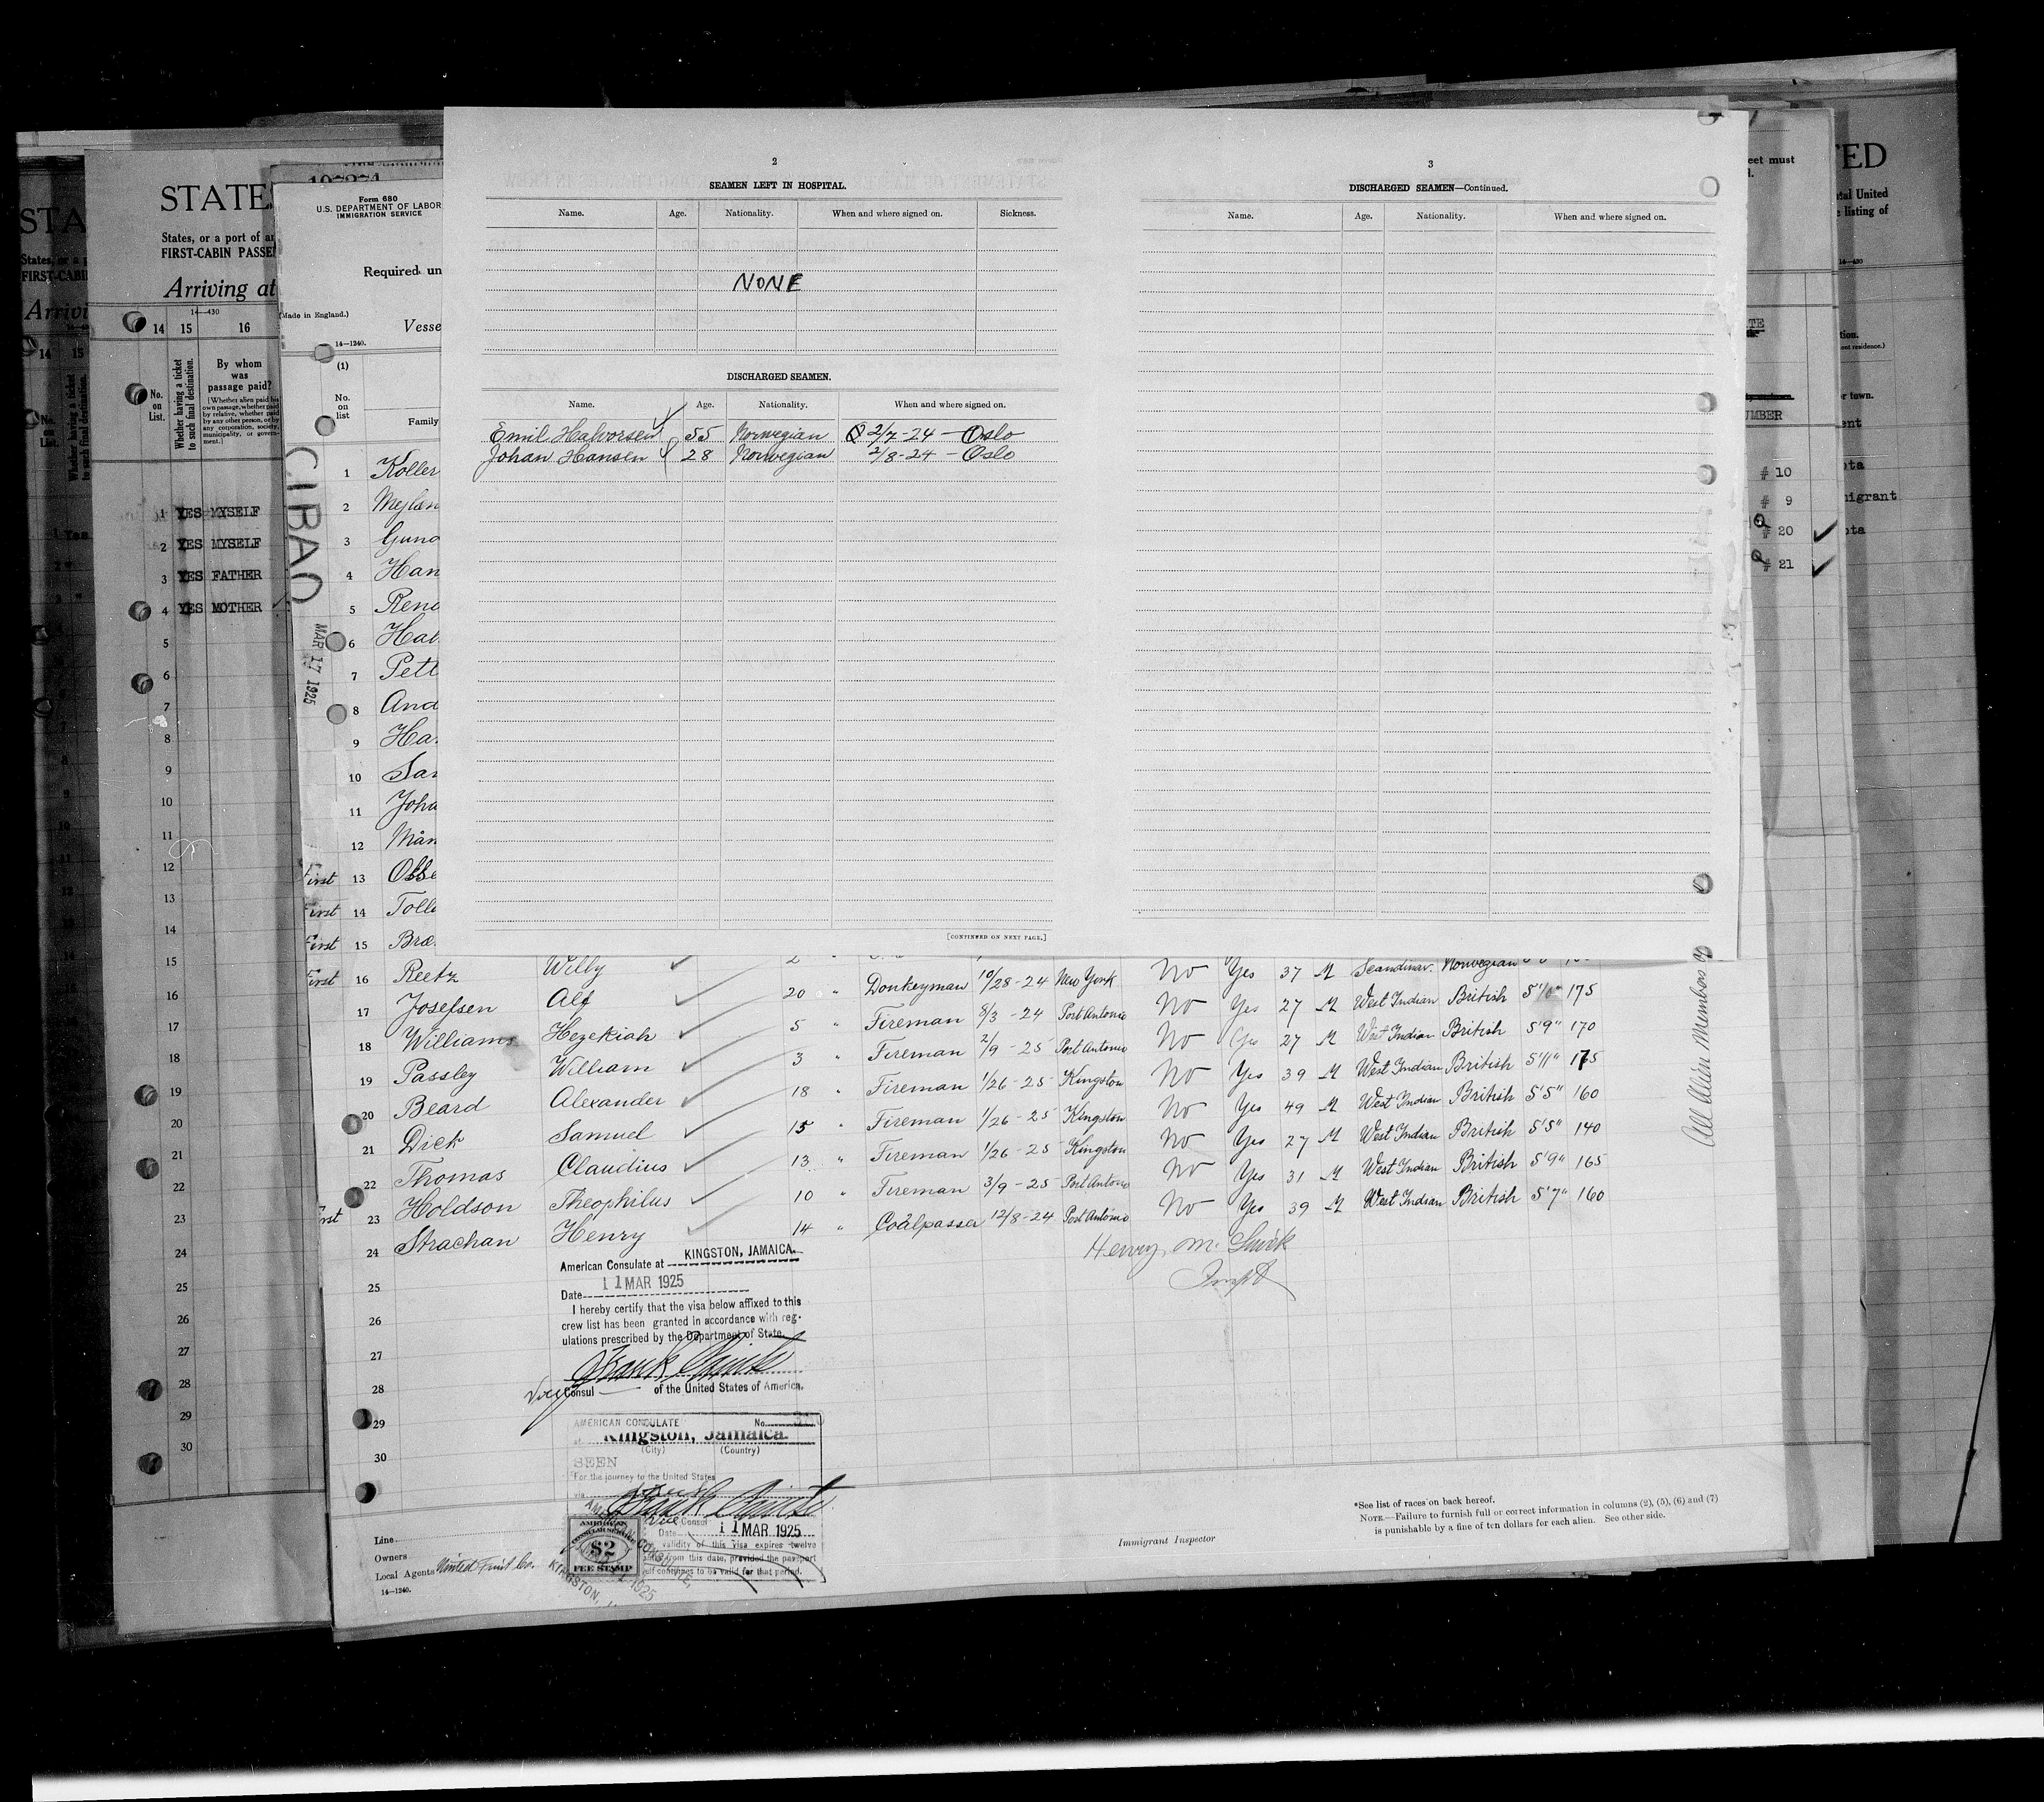 2
SEAMEN LEFT IN HOSPITAL.
Name. Age. Nationality. When and where signed on. Sickness.
NONE
DISCHARGED SEAMEN.
Name. Age. Nationality. When and where signed on.
Emil Halvorsen 55 Norwegian 2/7-24 - Oslo
Johan Hansen 28 Norwegian 2/8-24 - Oslo
[CONTINUED ON NEXT PAGE.]
3
DISCHARGED SEAMEN—Continued.
Name. Age. Nationality. When and where signed on.
STA
States, or a
FIRST-CABI
Arrivi
14 15
STATE
States, or a port of a
FIRST-CABIN PASSE
Arriving at
14—430
14 15 16
No. on List.
Whether having a ticket to such final destination.
By whom was passage paid?
(Whether alien paid his own passage, whether paid by relative, whether paid by any other person, or by any corporation, society, municipality, or government.)
1 YES MYSELF
2 YES MYSELF
3 YES FATHER
4 YES MOTHER
5
6
7
8
9
10
11
12
13
14
15
16
17
18
19
20
21
22
23
24
25
26
27
28
29
30
Form 680
U.S. DEPARTMENT OF LABOR
IMMIGRATION SERVICE
Required un
(Made in England.)
Vesse
14—1240.
(1)
No. on list
Family
CIBAO
MAR 17 1925
1 Koller
2 Mejlæn
3 Guno
4 Han
5 Reno
6 Hal
7 Pett
8 And
9 Ha
10 Sar
11 Joha
12 Mån
First 13 Olse
First 14 Tolle
First 15 Bræ
First 16 Reetz Willy
17 Josefsen Alf 20 " Donkeyman 10/28-24 New York No Yes 37 M Scandinav. Norwegian
18 Williams Hezekiah 5 " Fireman 8/3-24 Port Antonio No Yes 27 M West Indian British 5'10" 175
19 Passley William 3 " Fireman 2/9-25 Port Antonio No Yes 27 M West Indian British 5'9" 170
20 Beard Alexander 18 " Fireman 1/26-25 Kingston No Yes 39 M West Indian British 5'11" 175
21 Dick Samuel 15 " Fireman 1/26-25 Kingston No Yes 49 M West Indian British 5'5" 160
22 Thomas Claudius 13 " Fireman 1/26-25 Kingston No Yes 27 M West Indian British 5'5" 140
23 Holdson Theophilus 10 " Fireman 3/9-25 Port Antonio No Yes 31 M West Indian British 5'9" 165
24 Strachan Henry 14 " Coalpasser 12/8-24 Port Antonio No Yes 39 M West Indian British 5'7" 160
25
26
27
28
29
30
Henry M.
Inspt
All Alien Members
American Consulate at KINGSTON, JAMAICA.
Date 11 MAR 1925
I hereby certify that the visa below affixed to this
crew list has been granted in accordance with reg-
ulations prescribed by the Department of State.
Frank
Vice Consul of the United States of America.
AMERICAN CONSULATE No.
at Kingston, Jamaica.
(City) (Country)
SEEN
For the journey to the United States
via
Frank
Vice Consul
Date 11 MAR 1925
validity of this visa expires twelve
from this date, provided the passport
self continues to be valid for that period.
AMERICAN
CONSULAR SERVICE
$2
FEE STAMP
AMERICAN CONSULATE,
KINGSTON,
1925
Line
Owners
Local Agents United Fruit Co.
14—1240.
Immigrant Inspector
*See list of races on back hereof.
NOTE.—Failure to furnish full or correct information in columns (2), (5), (6) and (7)
is punishable by a fine of ten dollars for each alien. See other side.
eet must
UMBER
# 10
# 9
# 20
# 21
TED
United
listing of
14—430
tion.
or town.
migrant